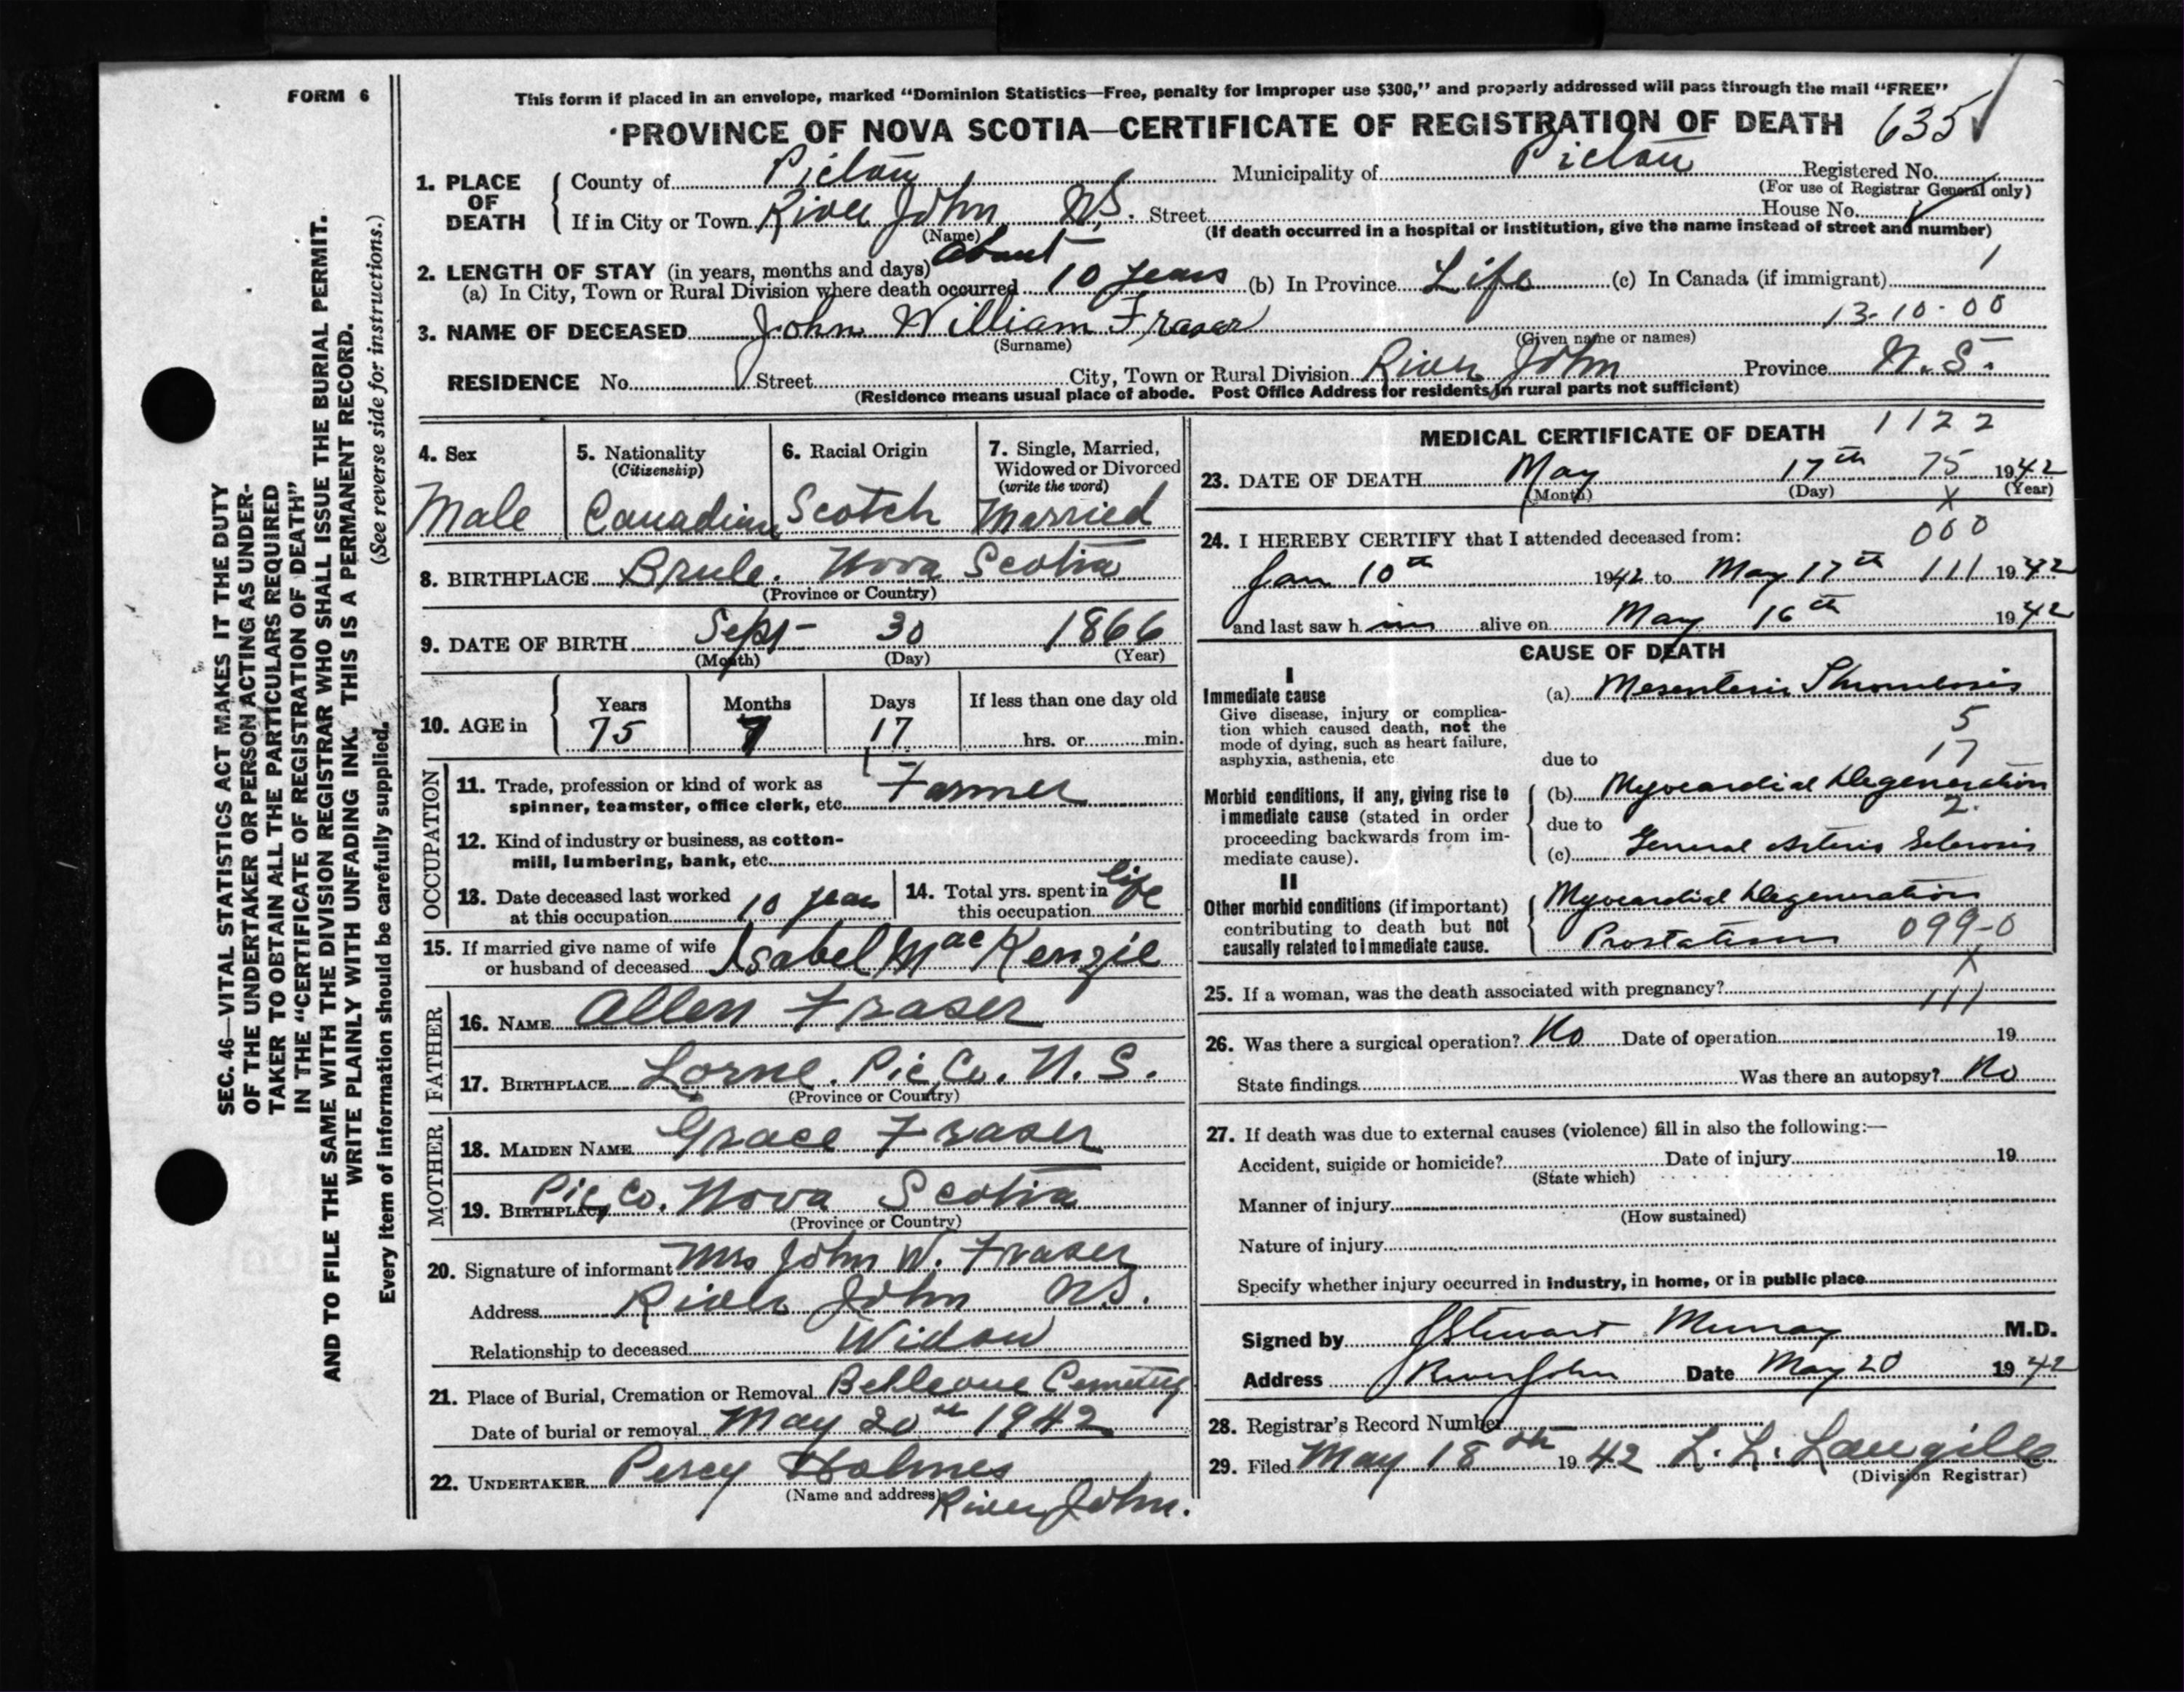 FORM 6
This form if placed in an envelope, marked "Dominion Statistics—Free, penalty for improper use $300," and properly addressed will pass through the mail "FREE"
PROVINCE OF NOVA SCOTIA—CERTIFICATE OF REGISTRATION OF DEATH 635
1. PLACE OF DEATH County of Pictou Municipality of Pictou Registered No.
(For use of Registrar General only)
If in City or Town River John N.S. Street House No.
(Name) (If death occurred in a hospital or institution, give the name instead of street and number)
2. LENGTH OF STAY (in years, months and days) about
(a) In City, Town or Rural Division where death occurred 10 years (b) In Province Life (c) In Canada (if immigrant) 1
13-10-00
3. NAME OF DECEASED John William Fraser
(Surname) (Given name or names)
RESIDENCE No. Street City, Town or Rural Division River John Province N.S.
(Residence means usual place of abode. Post Office Address for residents in rural parts not sufficient)
4. Sex 5. Nationality (Citizenship) 6. Racial Origin 7. Single, Married, Widowed or Divorced (write the word)
Male Canadian Scotch Married
8. BIRTHPLACE Brule. Nova Scotia
(Province or Country)
9. DATE OF BIRTH Sept- 30 1866
(Month) (Day) (Year)
10. AGE in Years Months Days If less than one day old
75 7 17 hrs. or min.
OCCUPATION
11. Trade, profession or kind of work as spinner, teamster, office clerk, etc. Farmer
12. Kind of industry or business, as cotton-mill, lumbering, bank, etc.
13. Date deceased last worked at this occupation 10 years 14. Total yrs. spent in this occupation life
15. If married give name of wife or husband of deceased Isabel MacKenzie
FATHER
16. NAME Allen Fraser
17. BIRTHPLACE Lorne. Pic, Co. N.S.
(Province or Country)
MOTHER
18. MAIDEN NAME Grace Fraser
19. BIRTHPLACE Pic, Co. Nova Scotia
(Province or Country)
20. Signature of informant Mrs John W. Fraser
Address River John N.S.
Relationship to deceased Widow
21. Place of Burial, Cremation or Removal Bellevue Cemetery
Date of burial or removal May 20th 1942
22. UNDERTAKER Percy Holmes
(Name and address) River John.
MEDICAL CERTIFICATE OF DEATH 1122
23. DATE OF DEATH May 17th 75 1942
(Month) (Day) X (Year)
24. I HEREBY CERTIFY that I attended deceased from: 000
Jan 10th 1942 to May 17th 111 1942
and last saw him alive on May 16th 1942
CAUSE OF DEATH
I
Immediate cause (a) Mesenteric Thrombosis
Give disease, injury or complication which caused death, not the mode of dying, such as heart failure, asphyxia, asthenia, etc
5
17
due to
Morbid conditions, if any, giving rise to immediate cause (stated in order proceeding backwards from immediate cause).
(b) Myocardial Degeneration
2.
due to
(c) General Arterio Sclerosis
II
Other morbid conditions (if important) contributing to death but not causally related to immediate cause.
Myocardial Degeneration
Prostatism 099-0
X
25. If a woman, was the death associated with pregnancy? 111
26. Was there a surgical operation? No Date of operation 19
State findings Was there an autopsy? No
27. If death was due to external causes (violence) fill in also the following:—
Accident, suicide or homicide? Date of injury 19
(State which)
Manner of injury
(How sustained)
Nature of injury
Specify whether injury occurred in industry, in home, or in public place
Signed by J Stewart Murray M.D.
Address River John Date May 20 1942
28. Registrar's Record Number
29. Filed May 18th 1942 L. L. Langille
(Division Registrar)
SEC. 46—VITAL STATISTICS ACT MAKES IT THE DUTY
OF THE UNDERTAKER OR PERSON ACTING AS UNDER-
TAKER TO OBTAIN ALL THE PARTICULARS REQUIRED
IN THE "CERTIFICATE OF REGISTRATION OF DEATH"
AND TO FILE THE SAME WITH THE DIVISION REGISTRAR WHO SHALL ISSUE THE BURIAL PERMIT.
WRITE PLAINLY WITH UNFADING INK. THIS IS A PERMANENT RECORD.
Every item of information should be carefully supplied. (See reverse side for instructions.)